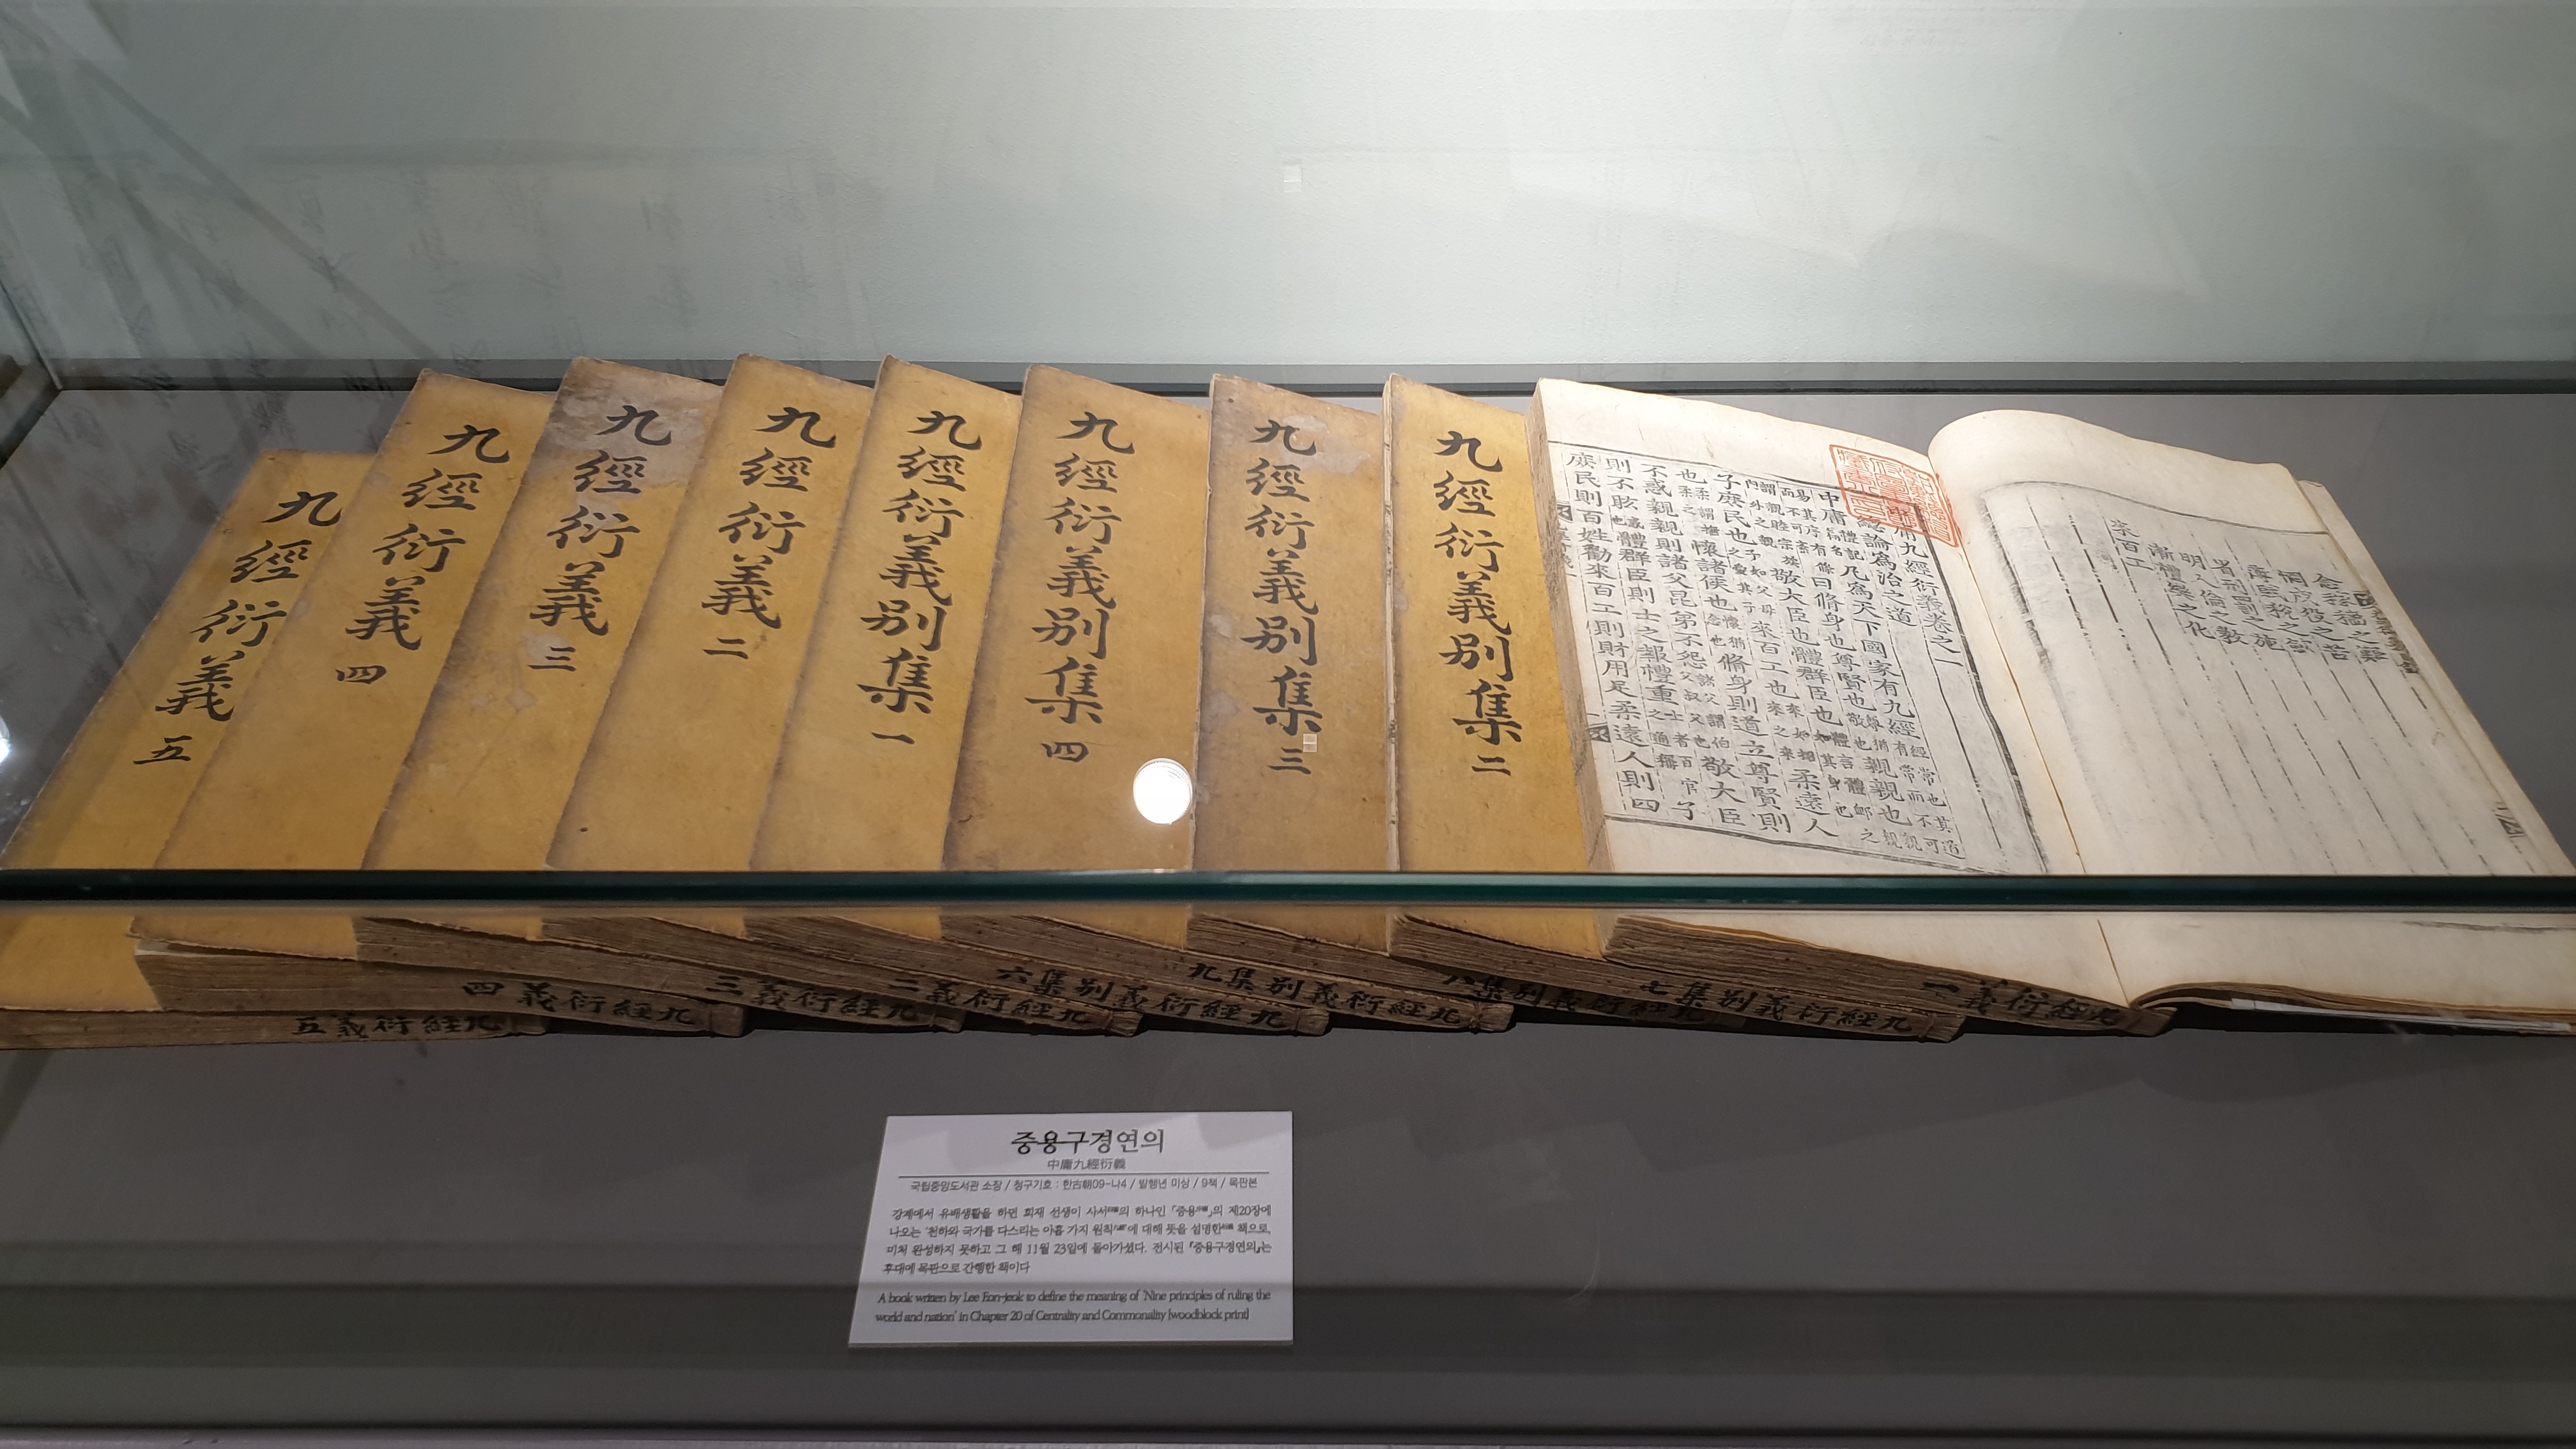 九經衍義 五
九經衍義 四
九經衍義 三
九經衍義 二
九經衍義別集 一
九經衍義別集 四
九經衍義別集 三
九經衍義別集 二
庸九經衍義卷之一
總論爲治之道
中庸 凡爲天下國家有九經
曰脩身也尊賢也 親親也
敬大臣也體群臣也 柔遠人
子庶民也 來百工也
懷諸侯也 脩身則道立尊賢則
不惑親親則諸父昆弟不怨 敬大臣
則不眩 體群臣則士之報禮重 子
庶民則百姓勸來百工則財用足柔遠人則四
念稼穡之艱
恤戍役之苦
省刑罰之施
明人倫之教
漸禮樂之化
來百工
九經衍義五
九經衍義四
九經衍義三
九經衍義二
九經衍義別集六
九經衍義別集九
九經衍義別集八
九經衍義別集七
九經衍義一
중용구경연의
中庸九經衍義
국립중앙도서관 소장 / 청구기호 : 한古朝09-나4 / 발행년 미상 / 9책 / 목판본
강계에서 유배생활을 하던 회재 선생이 사서의 하나인 「중용」의 제20장에
나오는 '천하와 국가를 다스리는 아홉 가지 원칙'에 대해 뜻을 설명한 책으로,
미처 완성하지 못하고 그 해 11월 23일에 돌아가셨다. 전시된 『중용구경연의』는
후대에 목판으로 간행한 책이다
A book written by Lee Eon-jeok to define the meaning of 'Nine principles of ruling the
world and nation' in Chapter 20 of Centrality and Commonality [woodblock print]